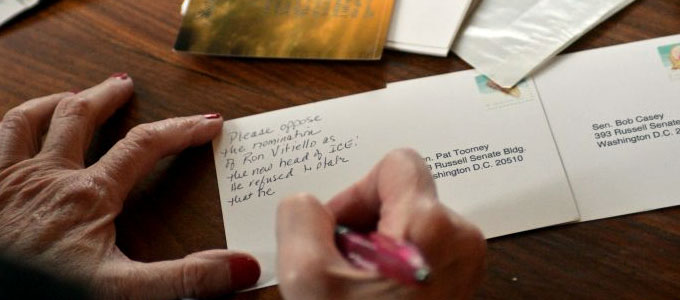 Please oppose
the nomination
of Ron Vitiello as
the new head of ICE!
He refused to state
that he
n. Pat Toomey
Russell Senate Bldg.
ashington D.C. 20510
Sen. Bob Casey
393 Russell Senate
Washington D.C. 2